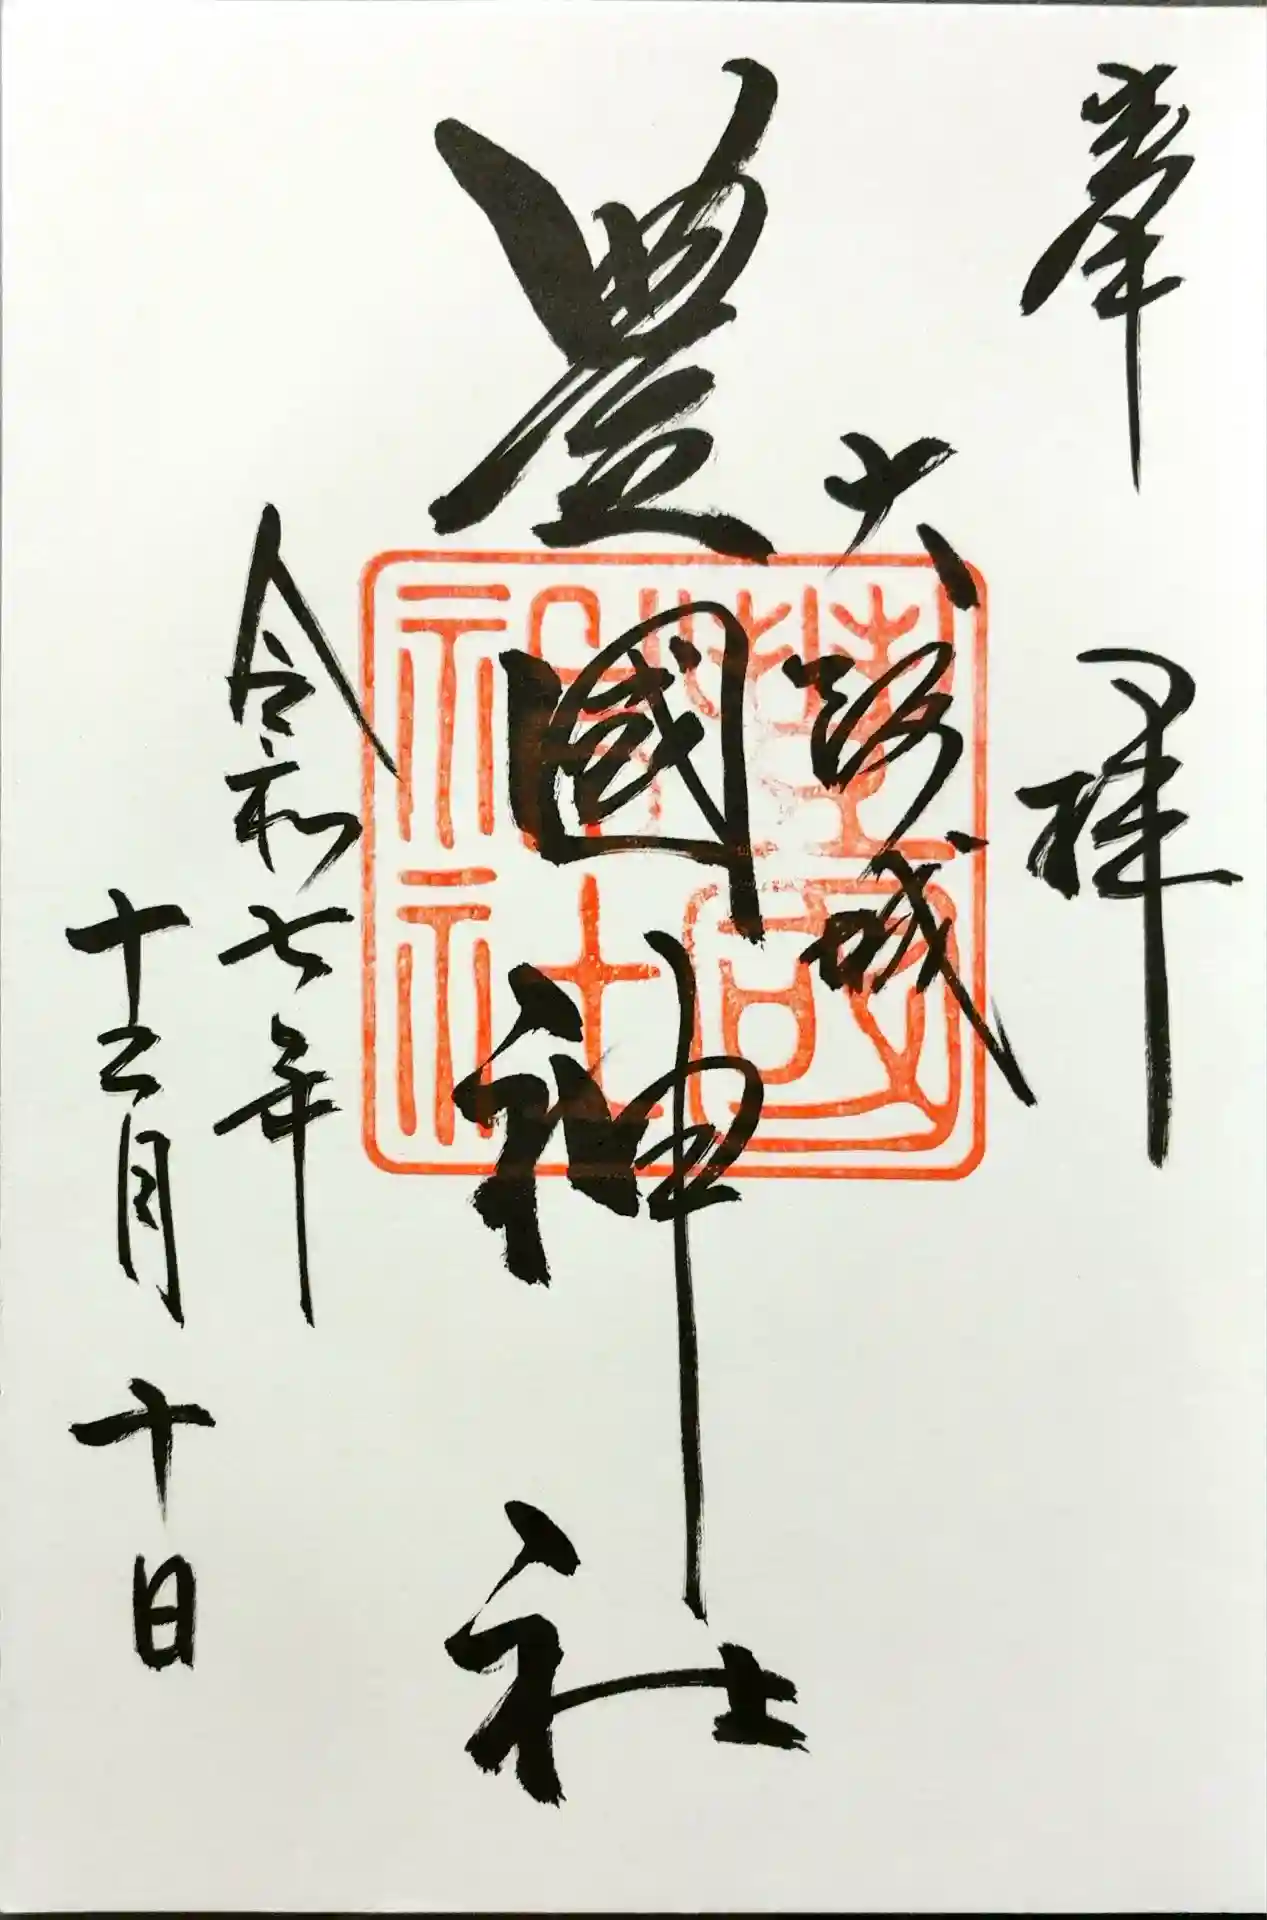 奉拝
大阪城
豊國神社
豊国神社
令和七年
十二月十日